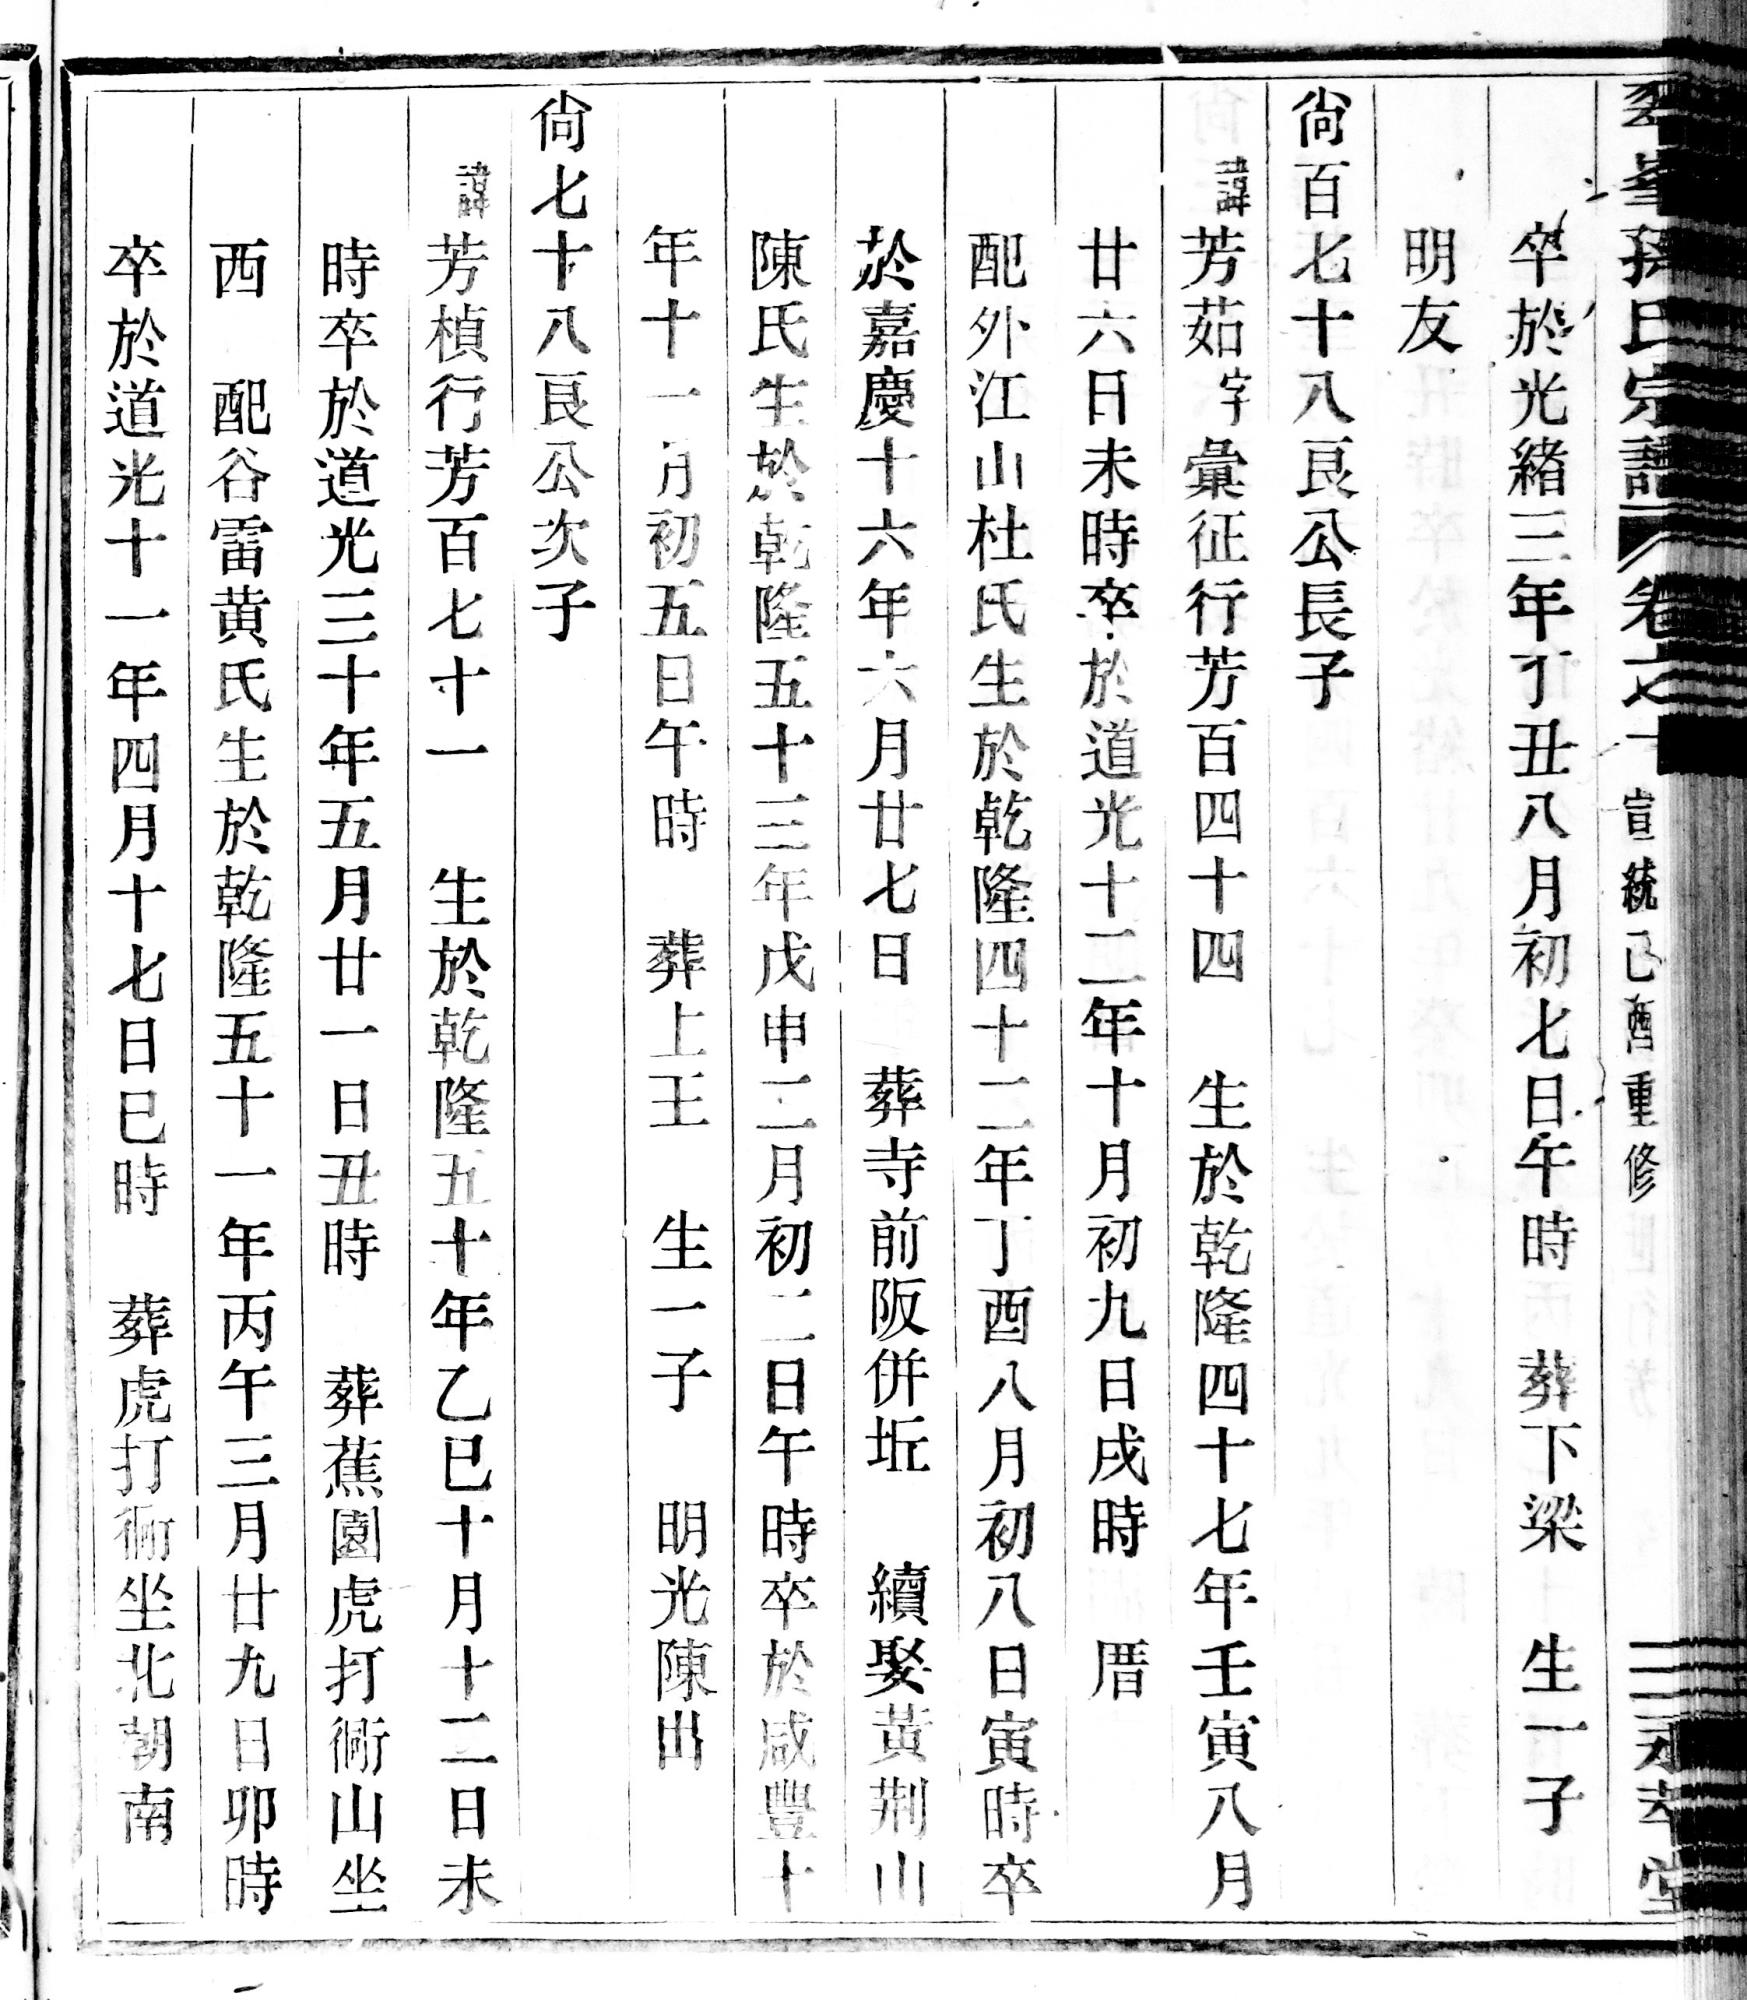 孫氏宗譜 卷之十 宣統己酉重修 永孝堂
卒於光緒三年丁丑八月初七日午時 葬下梁 生一子
明友
尙百七十八良公長子
諱芳茹字彙征行芳百四十四 生於乾隆四十七年壬寅八月
廿六日未時卒於道光十二年十月初九日戌時 厝
配外江山杜氏生於乾隆四十二年丁酉八月初八日寅時卒
於嘉慶十六年六月廿七日 葬寺前阪併坵 續娶黃荆山
陳氏生於乾隆五十三年戊申二月初二日午時卒於咸豐十
年十一月初五日午時 葬上王 生一子 明光陳出
尙七十八良公次子
諱芳楨行芳百七十一 生於乾隆五十年乙巳十月十二日未
時卒於道光三十年五月廿一日丑時 葬蕉園虎打衕山坐
西 配谷雷黄氏生於乾隆五十一年丙午三月廿九日卯時
卒於道光十一年四月十七日巳時 葬虎打衕坐北朝南